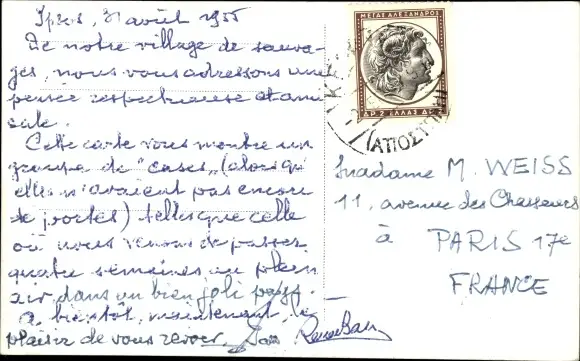 31 août 1955
De notre village de sauva-
ges, nous vous adressons une
pensée respectueuse et ami
cale.
Cette carte vous montre un
groupe de "cases" (alors qu'
elles n'avaient pas encore
de portes) telles que celle
où nous venons de passer
quatre semaines en plein
air, dans un bien joli pays.
À bientôt, maintenant, le
plaisir de vous revoir.
ΜΕΓΑΣ ΑΛΕΞΑΝΔΡΟΣ
ΔΡ 2 ΕΛΛΑΣ ΔΡ 2
Madame M. WEISS
11, avenue des Chasseurs
à PARIS 17e
FRANCE